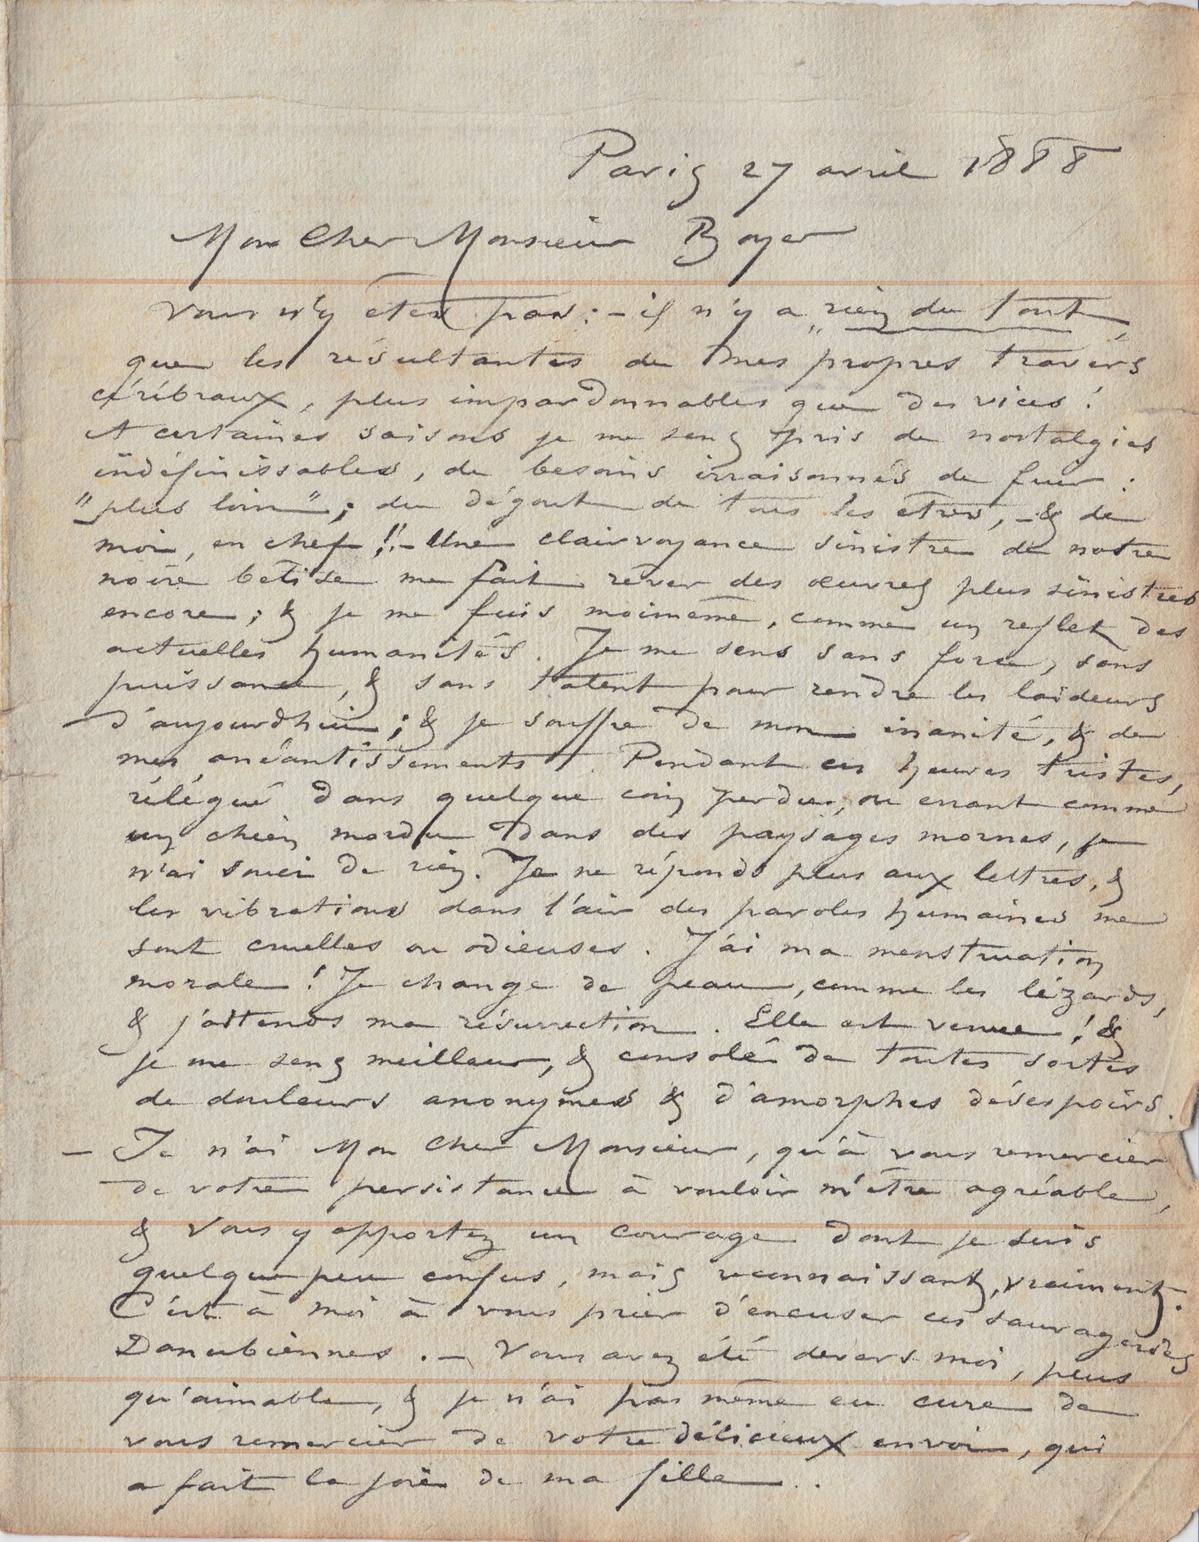 Paris 27 avril 1888
Mon Cher Monsieur Boyer
Vous n'y êtes pas : – il n'y a „ rien du tout,
que les résultantes de mes propres travers
cérébraux, plus impardonnables que des vices !
A certaines saisons je me sens pris de nostalgies
indéfinissables, de besoins irraisonnés de fuir :
"plus loin" ; de dégout de tous les êtres, – & de
moi, en chef !! – Une clairvoyance sinistre de notre
noire bêtise me fait rêver des œuvres plus sinistres
encore ; & je me fuis moimême, comme un reflet des
actuelles humanités. Je me sens sans force, sans
puissance, & sans talent pour rendre les laideurs
d'aujourdhui ; & je souffre de mon inanité, & de
mes anéantissements. Pendant ces heures tristes,
rélégué dans quelque coin perdu, ou errant comme
un chien mordu dans des paysages mornes, je
n'ai souci de rien. Je ne réponds plus aux lettres, &
les vibrations dans l'air des paroles humaines me
sont cruelles ou odieuses. J'ai ma menstruation
morale ! Je change de peau, comme les lézards,
& j'attends ma résurrection. Elle est venue ! &
je me sens meilleur, & consolé de toutes sortes
de douleurs anonymes & d'amorphes désespoirs.
– Je n'ai Mon Cher Monsieur, qu'à vous remercier
de votre persistance à vouloir m'être agréable,
& vous y apportez un courage dont je suis
quelque peu confus, mais reconnaissant, vraiment.
C'est à moi à vous prier d'excuser ces sauvageries
Danubiennes. – Vous avez été devers moi, plus
qu'aimable, & je n'ai pas même eu cure de
vous remercier de votre délicieux envoi, qui
a fait la joie de ma fille . .